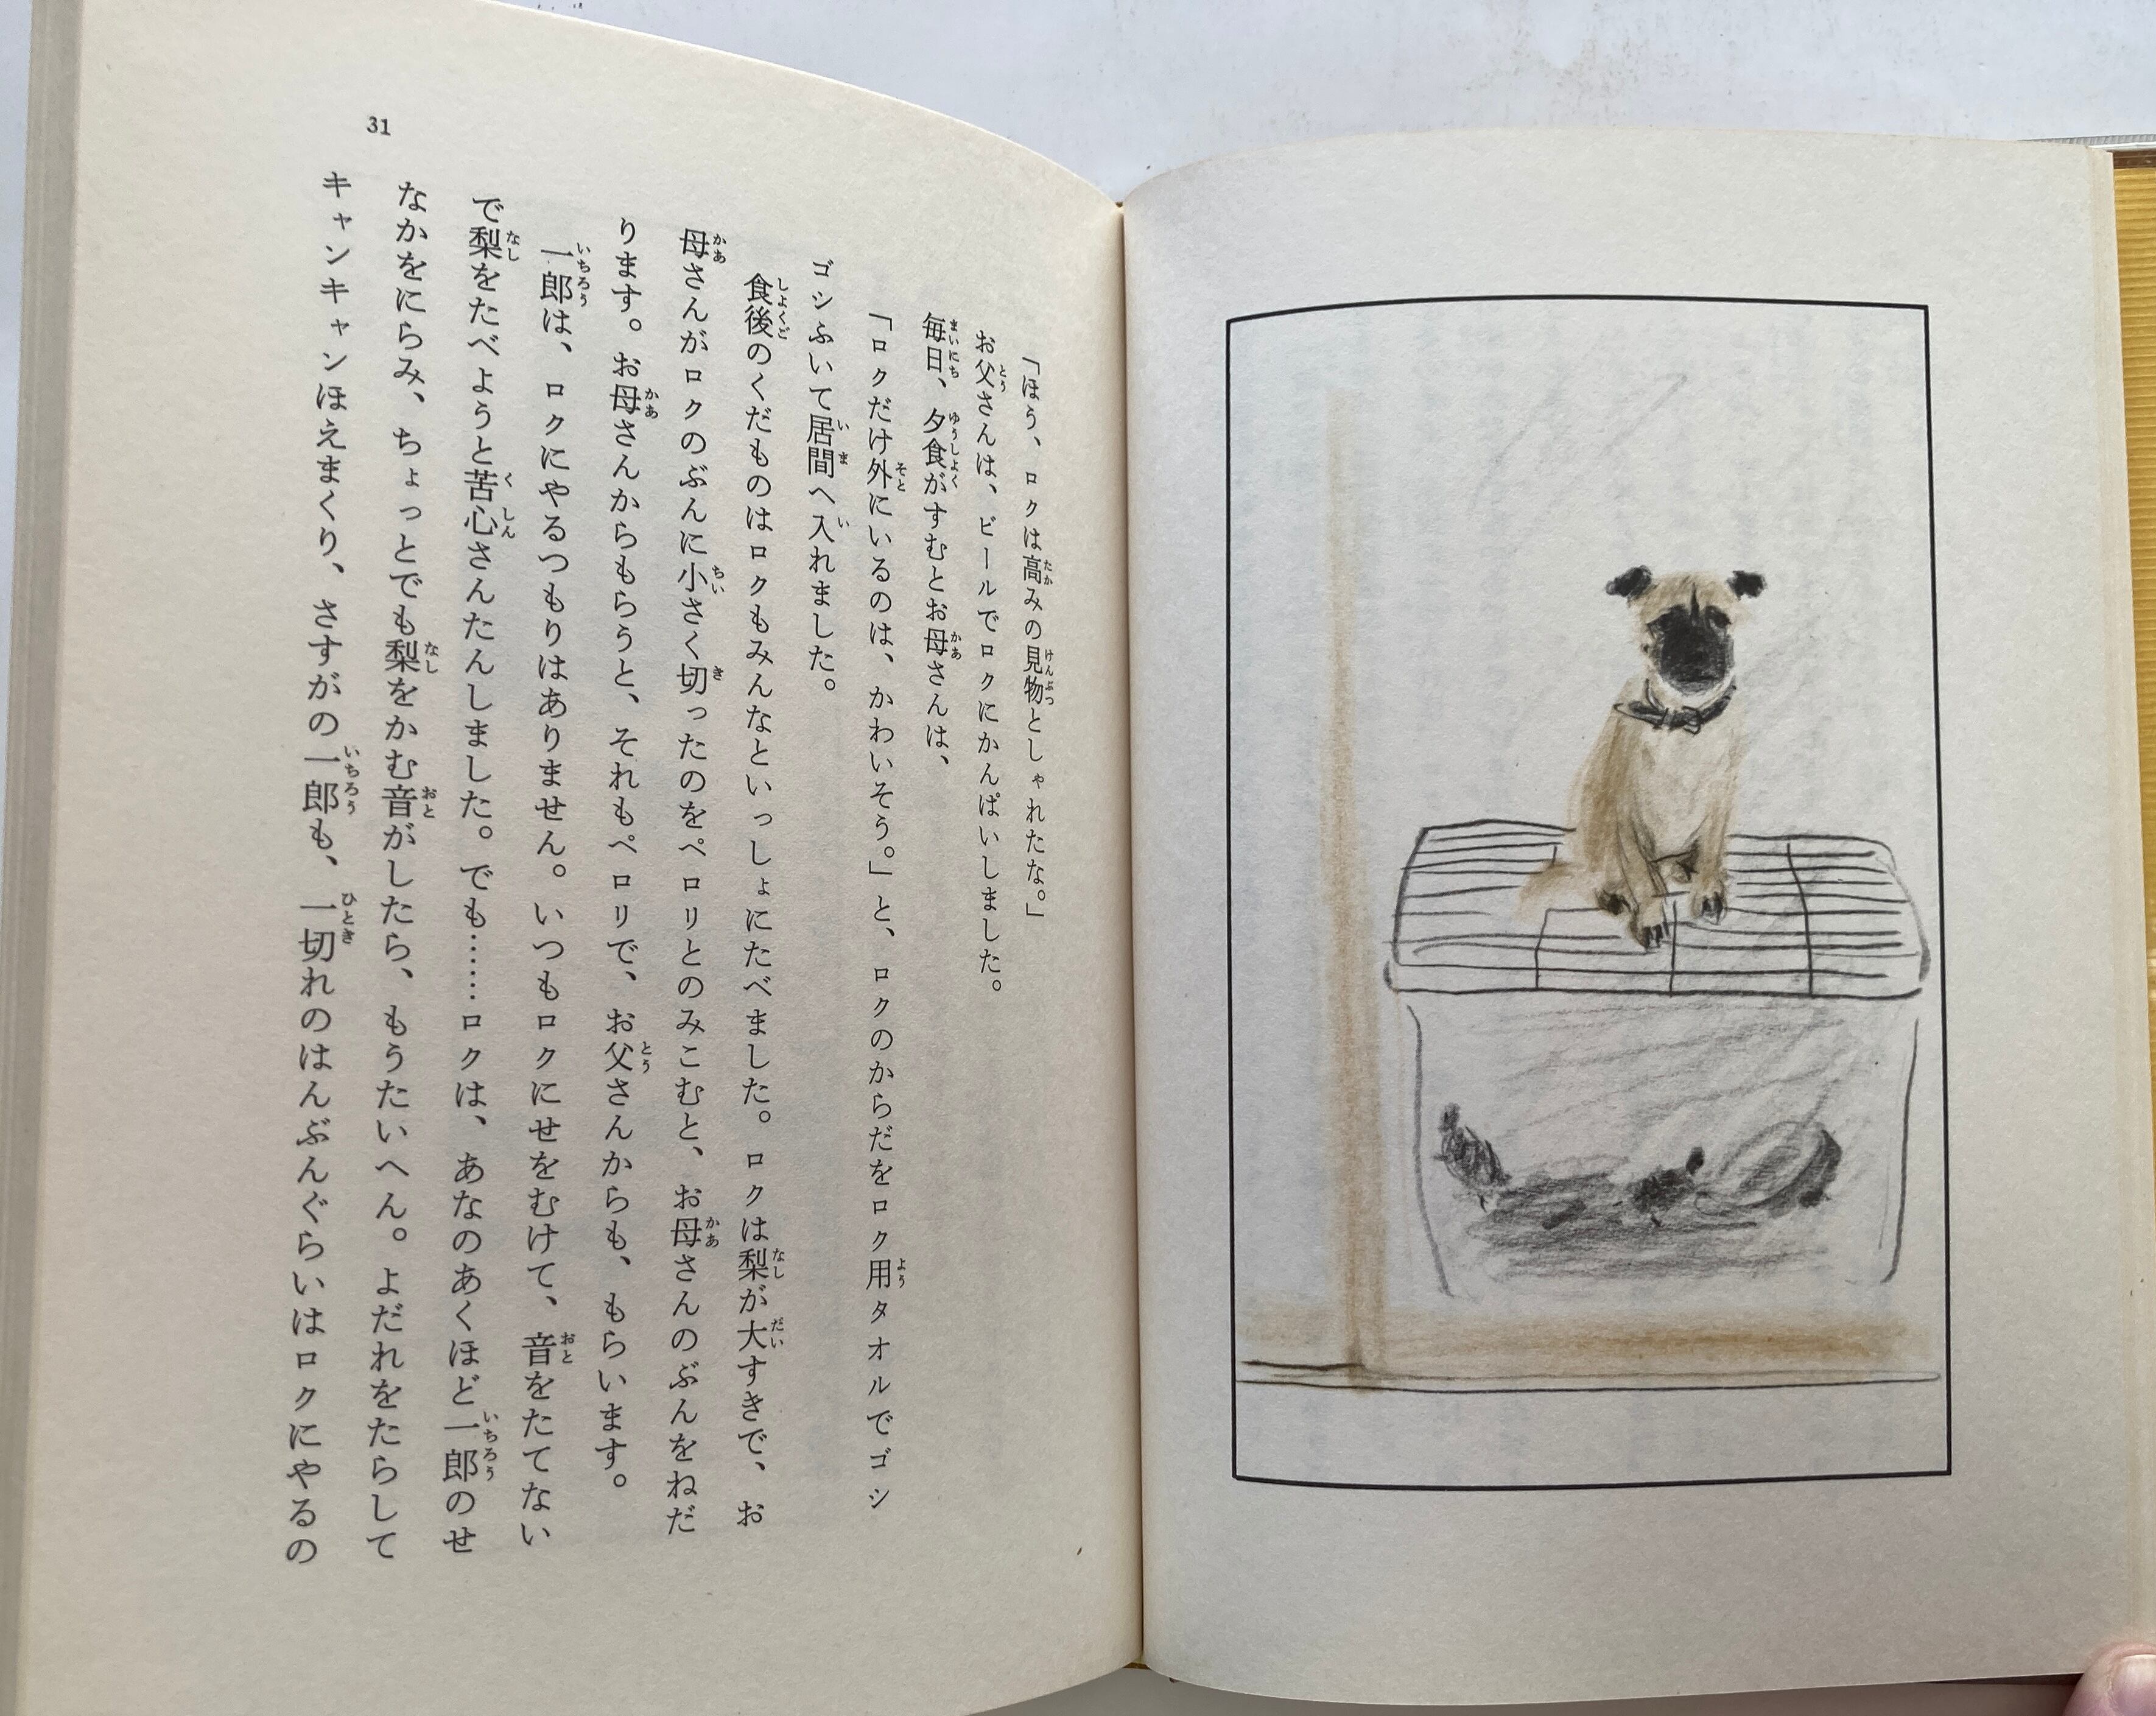 「ほう、ロクは高みの見物としゃれたな。」
お父さんは、ビールでロクにかんぱいしました。
毎日、夕食がすむとお母さんは、
「ロクだけ外にいるのは、かわいそう。」と、ロクのからだをロク用タオルでゴシ
ゴシふいて居間へ入れました。
食後のくだものはロクもみんなといっしょにたべました。ロクは梨が大すきで、お
母さんがロクのぶんに小さく切ったのをペロリとのみこむと、お母さんのぶんをねだ
ります。お母さんからもらうと、それもペロリで、お父さんからも、もらいます。
一郎は、ロクにやるつもりはありません。いつもロクにせをむけて、音をたてない
で梨をたべようと苦心さんたんしました。でも……ロクは、あなのあくほど一郎のせ
なかをにらみ、ちょっとでも梨をかむ音がしたら、もうたいへん。よだれをたらして
キャンキャンほえまくり、さすがの一郎も、一切れのはんぶんぐらいはロクにやるの
31